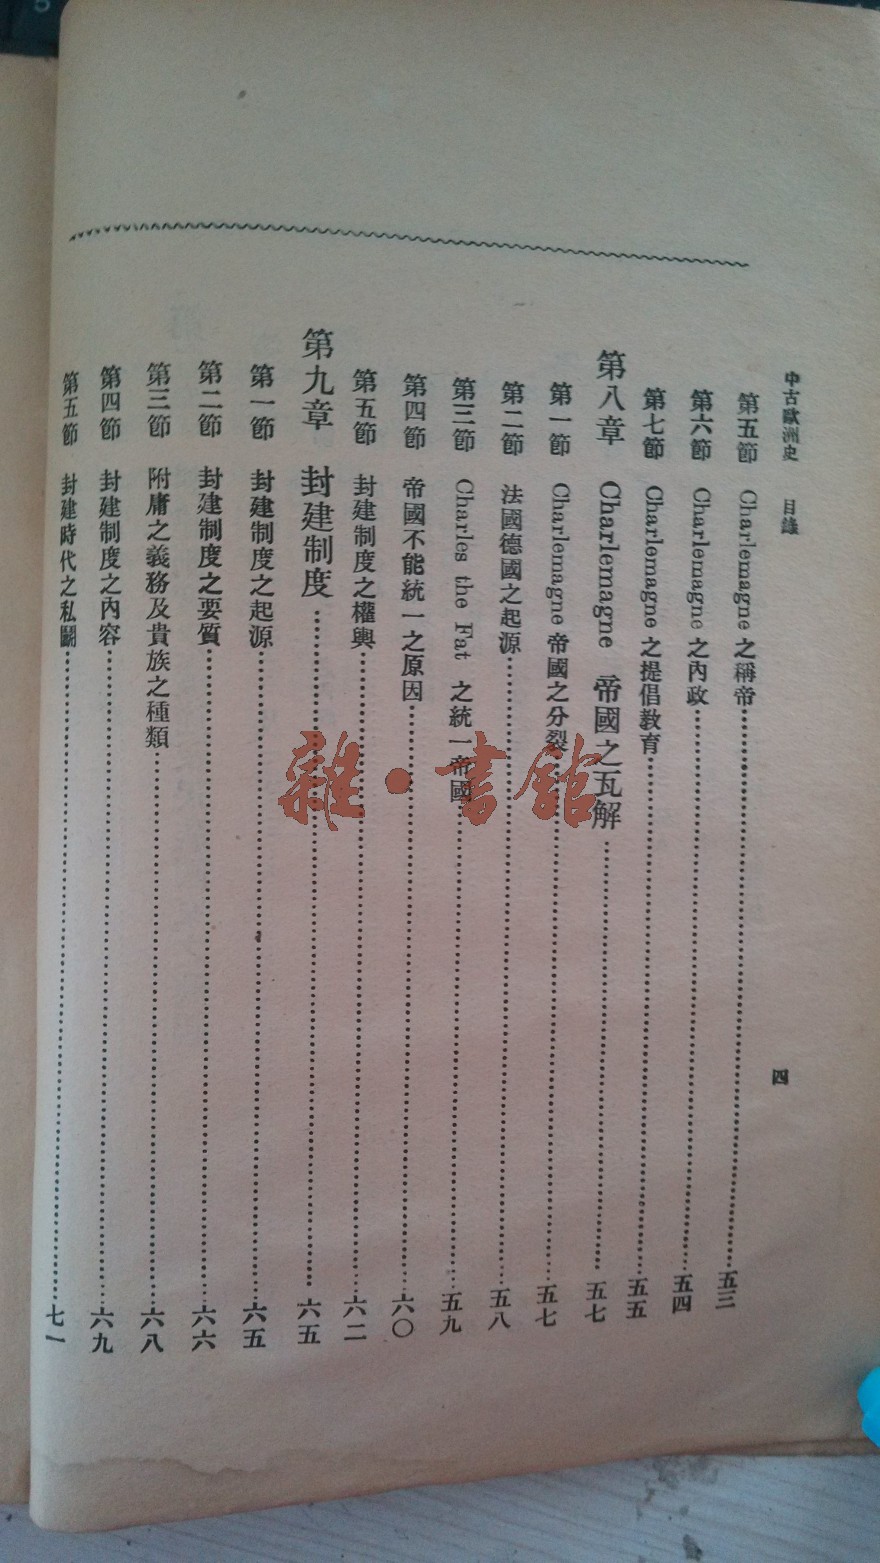 中古歐洲史 目錄 四
第五節 Charlemagne 之稱帝 五三
第六節 Charlemagne 之內政 五四
第七節 Charlemagne 之提倡教育 五五
第八章 Charlemagne 帝國之瓦解 五七
第一節 Charlemagne 帝國之分裂 五七
第二節 法國德國之起源 五八
第三節 Charles the Fat 之統一帝國 五九
第四節 帝國不能統一之原因 六〇
第五節 封建制度之權輿 六二
第九章 封建制度 六五
第一節 封建制度之起源 六五
第二節 封建制度之要質 六六
第三節 附庸之義務及貴族之種類 六八
第四節 封建制度之內容 六九
第五節 封建時代之私鬭 七一
雜·書館